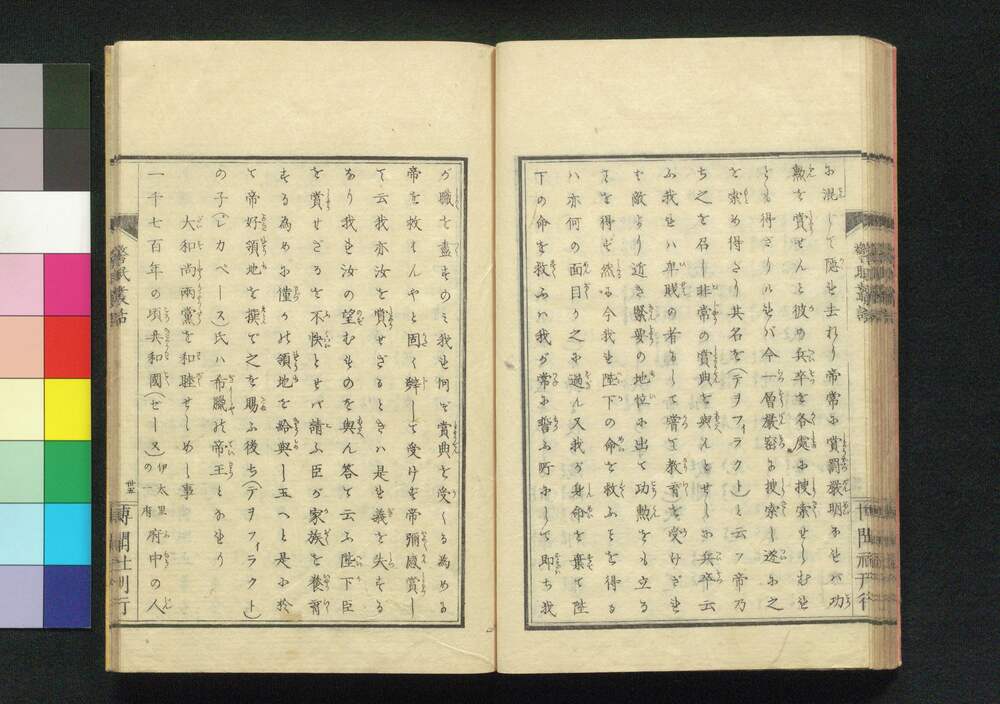 に混じて隠れ去れり帝常に賞罰厳明なれバ功
勲を賞せんと彼の兵卒を各處に捜索せしむれ
ども得ざりけれバ今一層嚴密に捜索し遂に之
を索め得さり其名を(テヲフィラクト)と云フ帝乃
ち之を召し非常の賞典を與んとせしに兵卒云
ふ我れハ卑賎の者にして嘗て教育を受けざれ
ども敵より近き緊要の地位に出て功勲をも立る
を得ず然るに今我れ陛下の命を救ふことを得る
ハ亦何の面目か之に過ん又我が身命を棄て陛
下の命を救ふハ我が常に誓ふ所にして即ち我
が職を盡すのミ我れ何ぞ賞典を受くる為めに
帝を救はんやと固く辞して受けず帝彌感賞し
て云我亦汝を賞せざるときハ是れ義を失する
なり我れ汝の望むものを與ん答て云ふ陛下臣
を賞せざるを不快とせバ請ふ臣が家族を養育
する為めに僅かの領地を給與し玉へと是に於
て帝好領地を撰で之を賜ふ後ち(テヲフィラクト)
の子(レカペース)氏ハ希臘の帝王となれり
大和尚兩黨を和睦せしめし事
一千七百年の頃共和國(ゼース)の一府 伊太里 府中の人
警眠叢話
世五
博聞社刊行